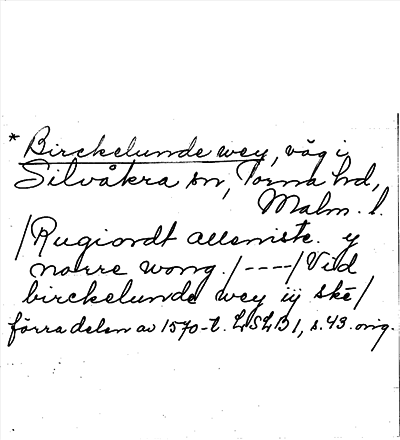 * Birckelunde wey, väg i
Silvåkra sn, Torna hd,
Malm. l.
/Rugiordt allemiste. y
norre wong./----/Viid
birckelunde wey iij ske/
förra delen av 1570-t. LSLB 1, s. 43. orig.